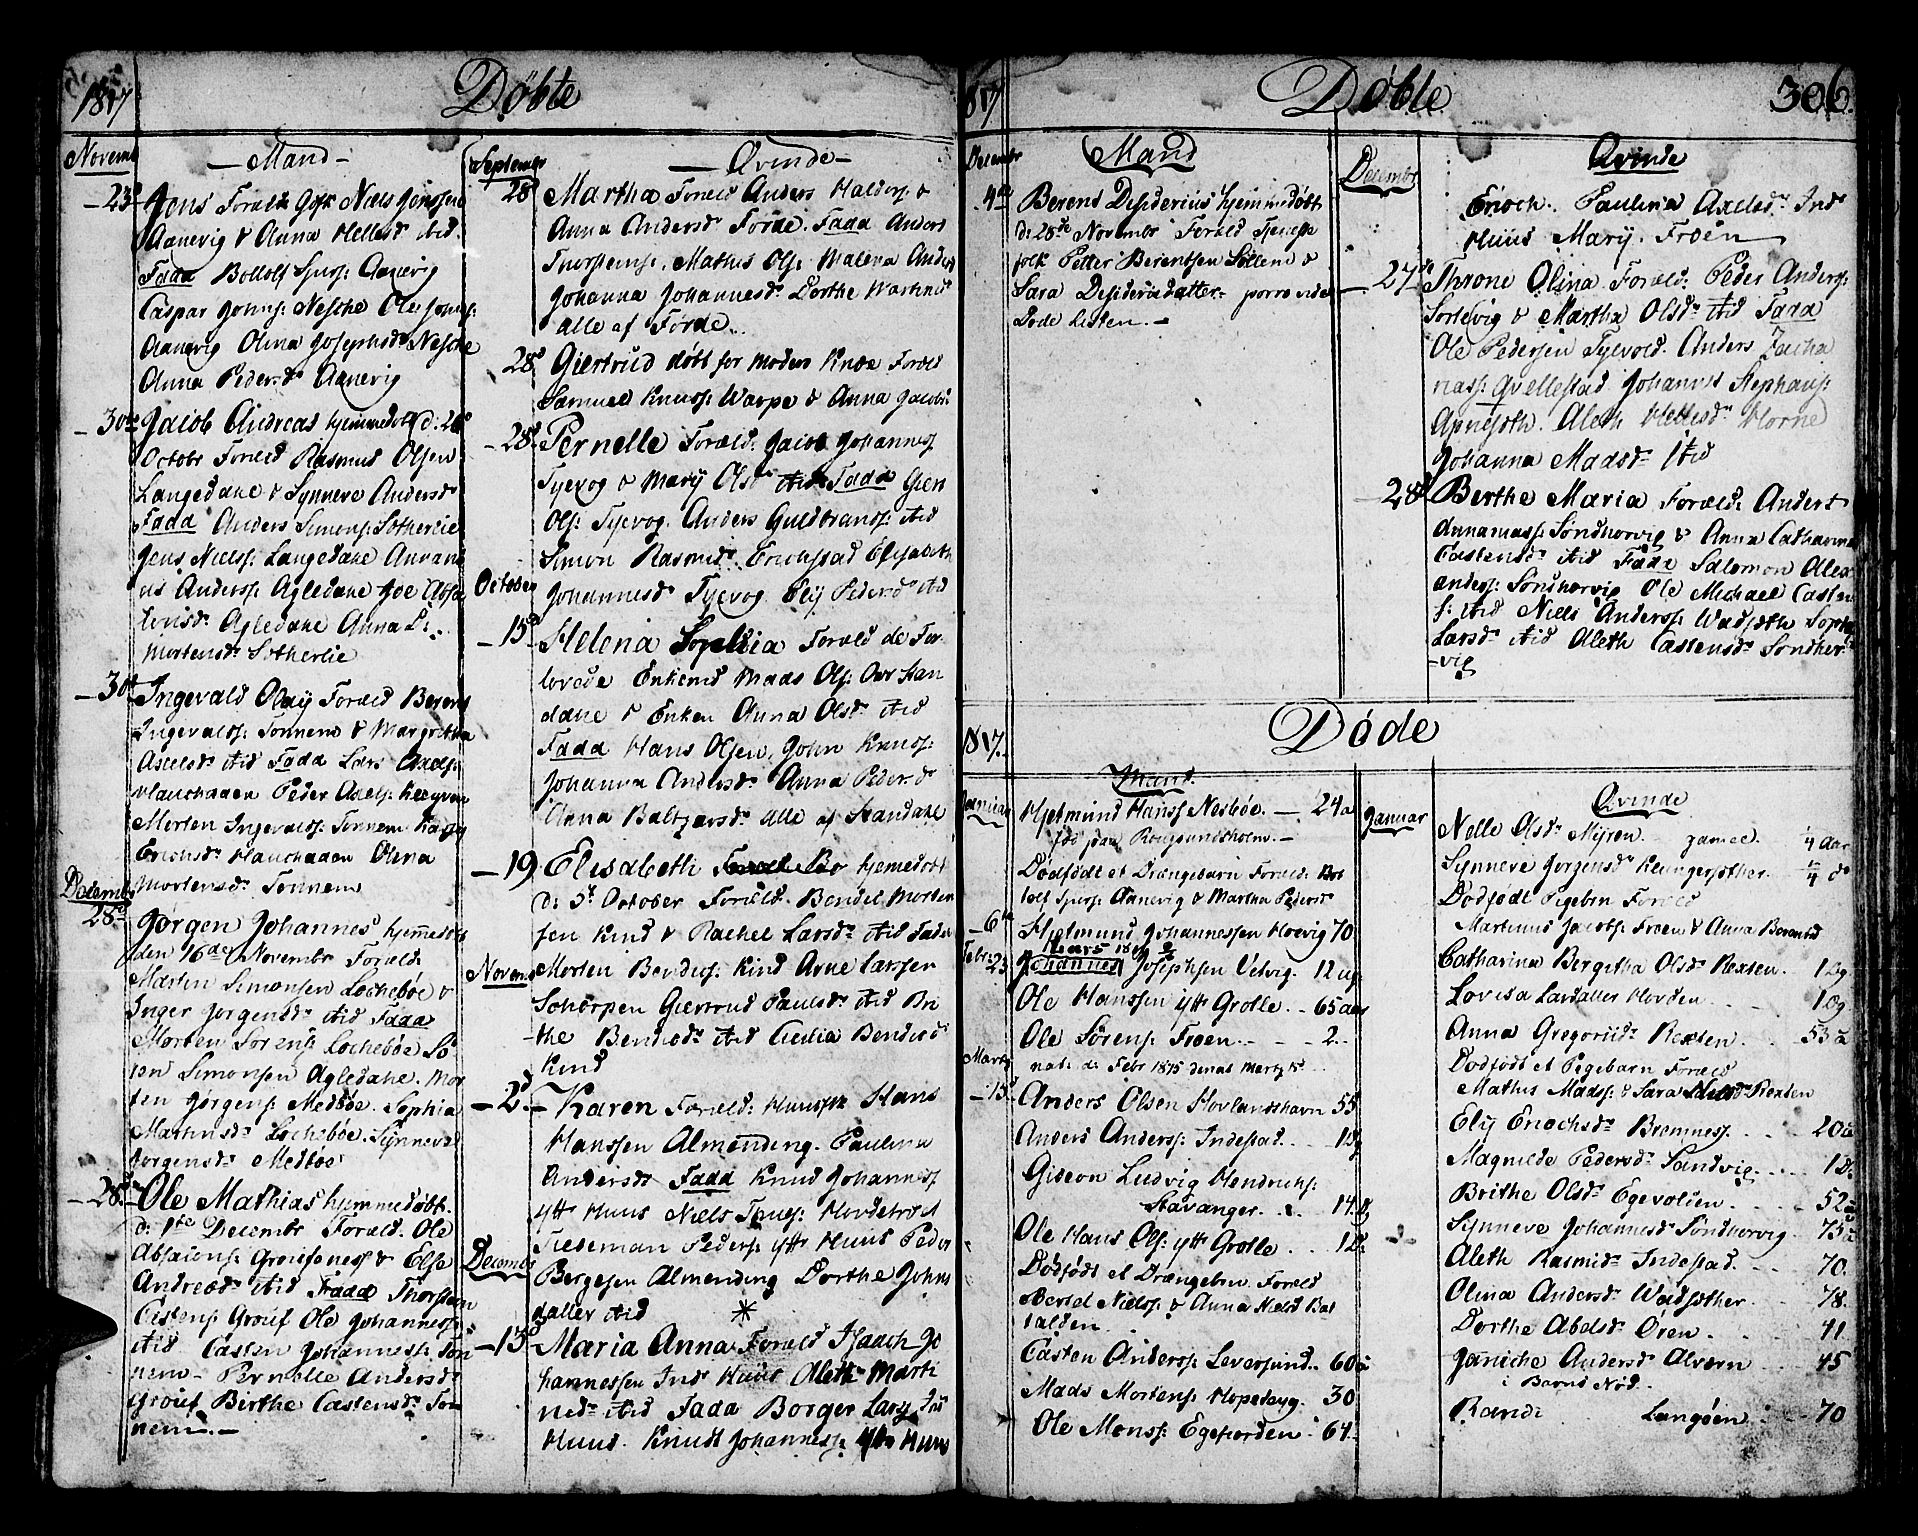 1817 Døbte
Novemb
— Mand —
— 23d Jens Foræld: Niels Jonssen
Aanevig & Anna Hellesd ibid.
Fadd Bottolf Sjurs: Aanevig
Caspar Johns: Nesche Ole Johns:
Aanevig Olina Josephsd. Nesche
Anna Pedersd. Aanevig
— 30d Jacob Andreas hjemmedøbt d: 28d
Octobr Foræld Rasmus Olsen
Langedahe & Synneve Andersd
Fadd Anders Simons: Sotherlie
Jens Niels: Langedahe
Anders: Agledahe
Agledahe Anna
Mortensd. Sotherlie
— 30d Ingevald Olay Foræld Berent
Ingevalds: Tonnem & Margretha
Axelsd ibid Fadd Lars Axels:
Hauchaaen Peder Axels:
Morten Ingevalds: Tonnem
Erichsd. Hauchaaen Olina
Mortensd. Tonnem
Decemb
28d Jørgen Johannes hjemmedøbt
den 16de Novembr Foræld:
Morten Simonsen Lochebøe &
Inger Jørgensd. ibid Fadd
Morten Sørens: Lochebøe Sø-
ren Simonsen Agledahe. Mor
ten Jørgens: Medbøe. Sophia
Martinsd. Lochebøe. Synneve
Jørgensd. Medbøe
— 28d Ole Mathias hjemmedøbt
d: 1te Decembr Foræld. Ole
Absalons: & Else
Andread. ibid Fadd Thorsten
Castens: Ole Johanness:
ibid Casten Johanness: Ton
nem — Pernelle Andersd.
Birthe Castensd. Ton
nem. —
Septembr
— Qvinde —
28d Martha Foræld Anders Halders: &
Anna Andersd. Førde. Fadd Anders
Thorstens:. Mathis Ols: Malena Anders
Johanna Johannesd. Dorthe Martins
alle af Førde.
28d Giertrud døbt for Moders Knæe Foræld
Samuel Knuds: Warpe & Anna Jacobs
— 28d Pernelle Foræld: Jacob Johanness
Tyevog & Mary Olsd. ibid Fadd
Ols: Tyevog. Anders Guldbrans: ibid
Simon Rasmusd. Erichstad Elisabeth
Johannesd Tyevog Ely Pedersd ibid
October
— 15d Helena Sophia Foræld de For
lovede Enkemd Maas Ols: Stan
dahe & Enken Anna Olsd. ibid
Fadd Hans Olsen. John Knuds:
Johanna Andersd. Anna Pedersd
Anna Baltzarsd. alle af Standahe
— 19 Elisabeth hjemedøbt
d: 5t October Foræld. Bendix Morten
sen Kind & Rachel Larsd. ibid Fadd
Novemb
Morten Bendixs: Kind Arne Larsen
Schorpen Giertrud Paulsd. ibid Bri
the Bendixd. ibid Cicilia Bendixd
Kind
— 2d. — Karen Foræld: Huusfk Hans
Hanssen Almending. Paulina
Andersd. Fadd Knud Johanness
ytt Huus Niels
Tideman Peders: ytt Huus Peder
Decemb
Bergesen Almending Dorthe Johns
datter ibid ✳
— 13d Maria Anna Foræld Isaach Jo
hannessen Ind Huus Aleth Marti
nsd. ibid Fadd Borger Lars: Ind
Huus. Knudt Johanness: ytt Huus
1817 Døbte 306.
Decembr
Mand
4de Berent Desiderius hjemmedøbt
d: 28de Novembr Foræld Tjeneste
folk Petter Berentsen &
Sara Desideriidatter — porro vide
Døde Listen. —
Decembr
Qvinde
Enoch. Paulina Axelsd. Ind
Huus Mary. Froen
27d Throne Olina Foræld: Peder Anders:
Sorlevig & Martha Olsd. ibid Fadd
Ole Pedersen Tyevold. Anders Zacha
rias: Gvellestad Johannes Stephans:
Aleth Hellesd. Horne
Johanna Maasd. ibid
28d Berthe Maria Foræld: Anders
Annanias: Søndhorvig & Anna Catharina
Castensd. ibid Fadd Salomon Alex
anders: Søndhorvig Ole Michael Casten
s: ibid Niells Anderss: Wadsøth Soph
Larsd. ibid Aleth Castensd. Søndhor-
—vig
1817. Døde
Januar
Mand
Hjelmund Hanss. Nesbøe. — 24 a
Dødfødt et Drængebarn Foræld. Bot
tolf Sjurs: Aanevig & Martha Pedersd
— 6te Hjelmund Johannessen Hoevig 70
Febr: 23 Johannes Josephsen Velvig. 12 ug
Ole Hanssen ytt Grotle. — 65 aar
Ole Sørens: Froen. — — — 2..
nat: d: Febr 1815 denat Marty
Marty
— 15d. Anders Olsen Hovlandshavn 55
Anders Anders: Indestad. . — 1 ug
Gideon Ludvig Hendrichs:
Stavanger. . . 14 d
Ole Hans Ols: ytt Grotle. . . 1 d:
Dødfødt et Drængebrn. Foræld
Bertel Niels: & Anna Nielsd Bat
talden
Casten Anders: Leversund. . 60 a
Mads Mortens: Hopedeyg. 30
Ole Mons: Egefiorden. . 64.
Januar
Qvinde
Nelle Olsd. Myren — gamel. ¼ aar
Synneve Jørgensd. ¼ d
Dødfødt Pigebrn Foræld
Martinus Jacobs: Froen & Anna Berentsd
Catharina Bergitha Olsd. Rexten. . 1 ug
Lovisa Larsdatter Hovden . . . 1 ug
Anna Gregoriid. Rexten. . . 53 a
Dødfødt et Pigebarn Foræld
Mathis Mads: & Sara Rexten
Ely Enochsd. Bremness. . . . 20 a
Magnilde Pedersd. Sandvig. . . . 1 d.
Brithe Olsd. Egevolien. . . . 52 a
Synneve Johannesd Søndhorvig. 75 a
Aleth Rasmusd. Indestad. . . 70.
Olina Andersd. Wadsøther. . . 78.
Dorthe Abelsd. Øren. . . . 41
Janiche Andersd Alværn . . . 45
i Barns Nød.
Randi Langøen . . . 70